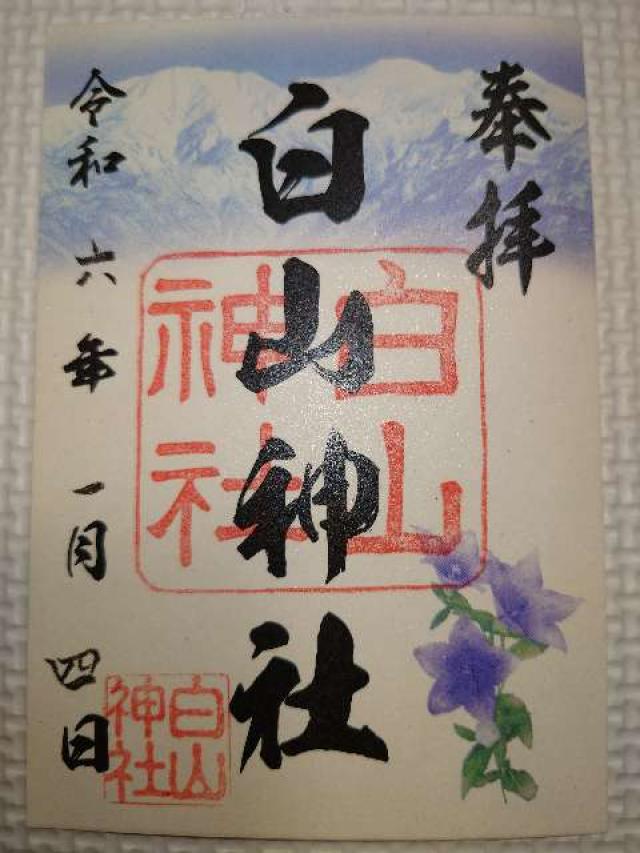 奉拝
白山神社
令和六年一月四日
白山神社
白山神社